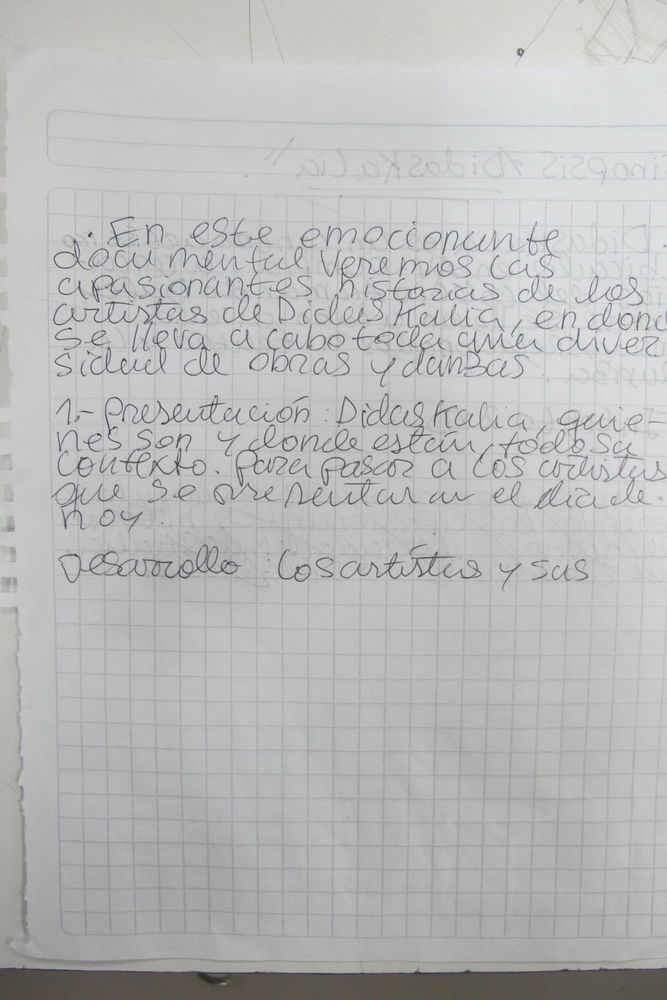 · En este emocionante
documental veremos las
apasionantes historias de los
artistas de DidasKalia, en dond
se lleva a cabo toda una diver
sidad de obras y danzas
1.- Presentación: DidasKalia, quie-
nes son y donde están, todo su
contexto. Para pasar a los artistas
que se presentaran el dia de
hoy.
Desarrollo: Los artistas y sus
Sinopsis "DidasKalia"